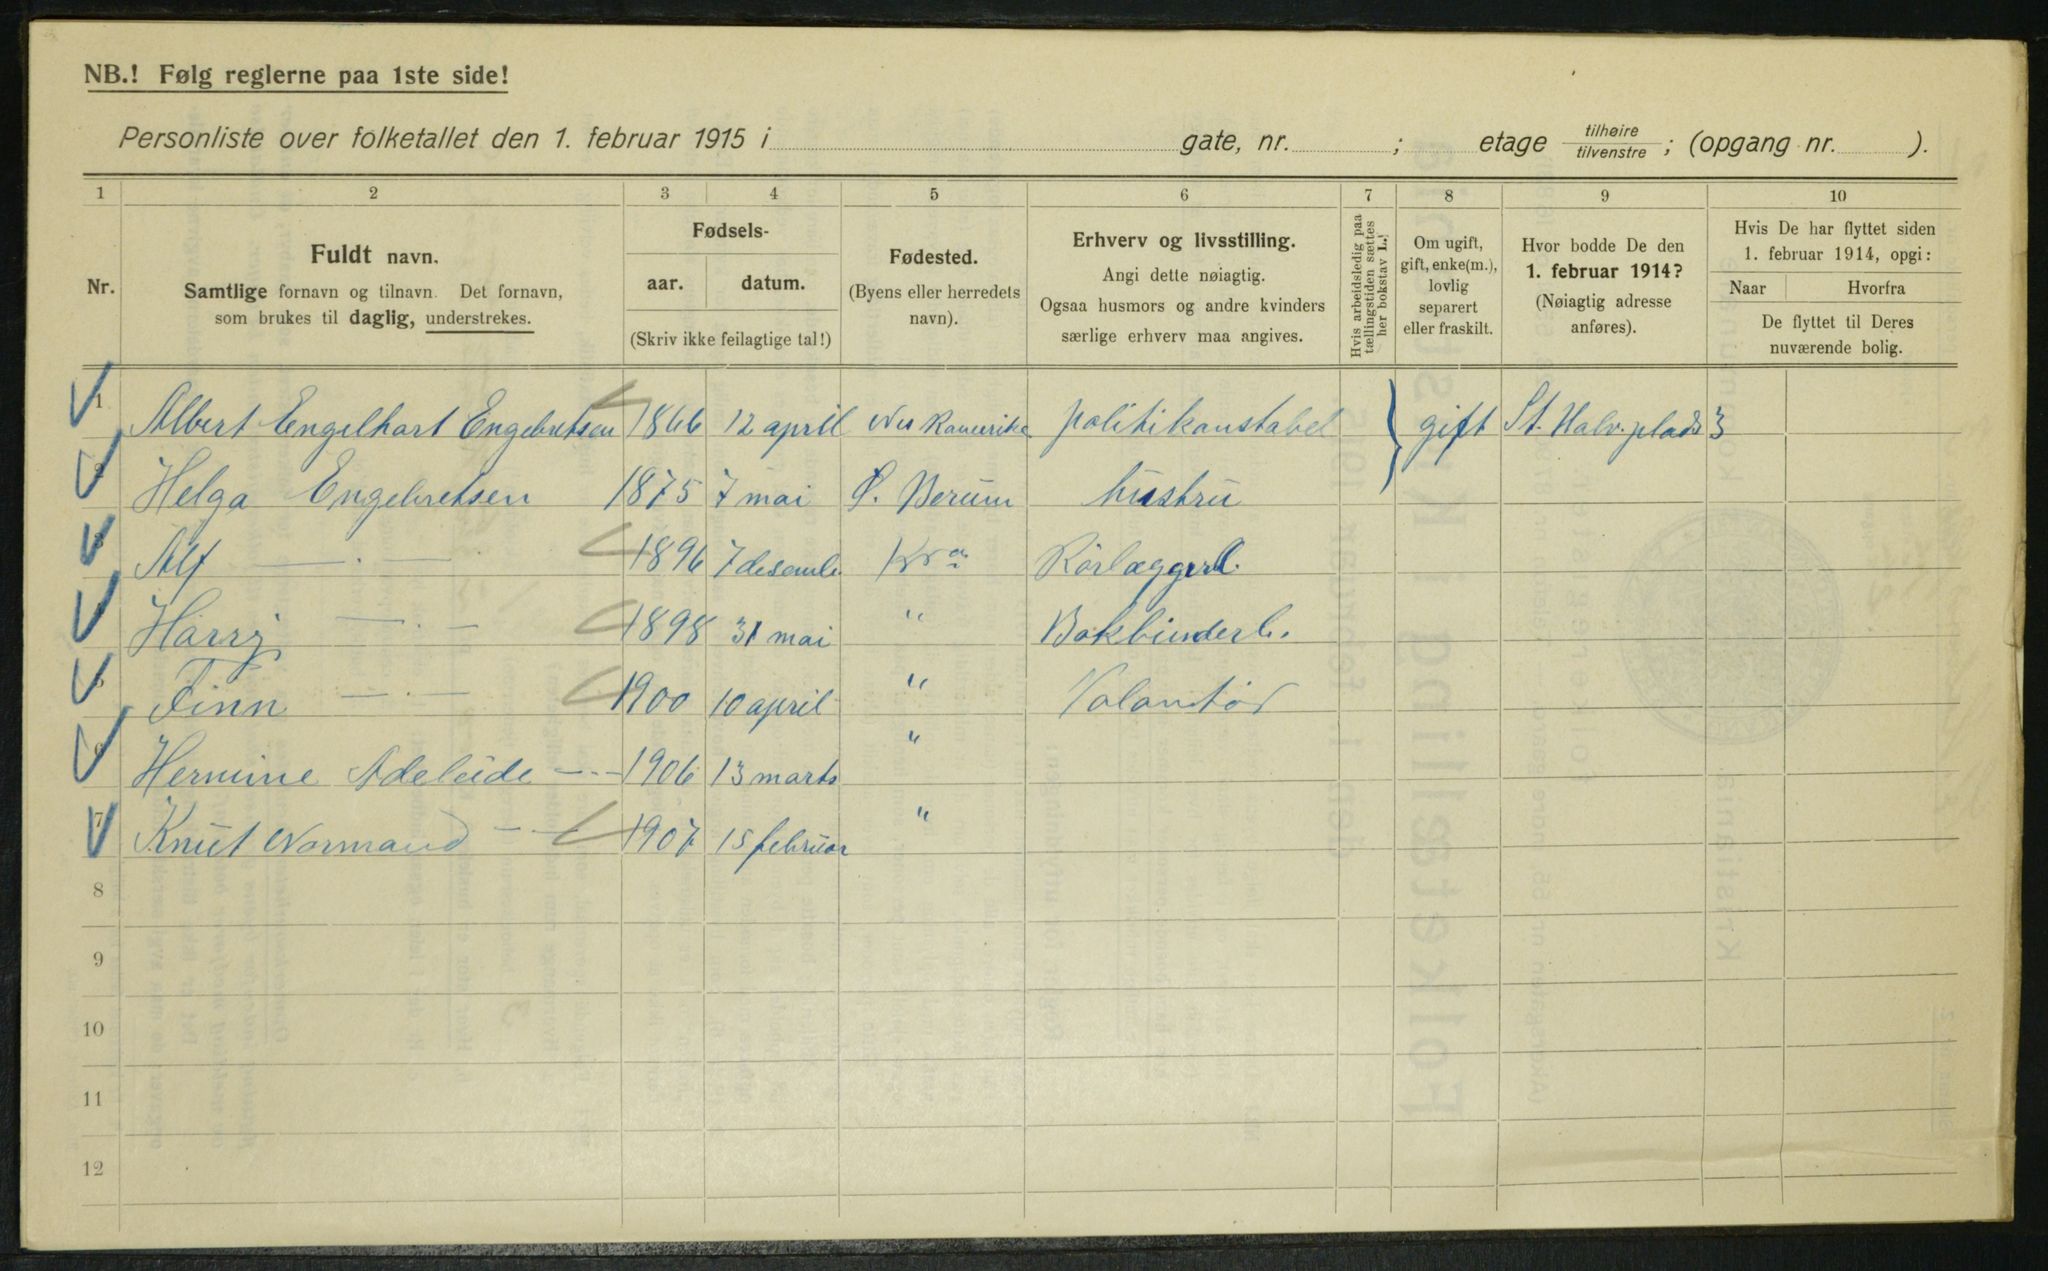 NB.! Følg reglerne paa 1ste side!
Personliste over folketallet den 1. februar 1915 i gate, nr. ; etage tilhøire tilvenstre ; (opgang nr. ).
1 2 3 4 5 6 7 8 9 10
Nr.
Fuldt navn.
Samtlige fornavn og tilnavn. Det fornavn,
som brukes til daglig, understrekes.
Fødsels-
aar. datum.
(Skriv ikke feilagtige tal!)
Fødested.
(Byens eller herredets
navn).
Erhverv og livsstilling.
Angi dette nøiagtig.
Ogsaa husmors og andre kvinders
særlige erhverv maa angives.
Hvis arbeidsledig paa
tællingstiden sættes
her bokstav L.!
Om ugift,
gift, enke(m.),
lovlig
separert
eller fraskilt.
Hvor bodde De den
1. februar 1914?
(Nøiagtig adresse
anføres).
Hvis De har flyttet siden
1. februar 1914, opgi:
Naar Hvorfra
De flyttet til Deres
nuværende bolig.
1 Albert Engelhart Engebretsen 1866 12 april politikonstabel gift St. Halv. plads 3
2 Helga Engebretsen 1875 7 mai Ø. Berum hustru
3 Alf — . — 1896 7 desemb. Kra Rörlæggerl.
4 Harry — . — 1898 31 mai " Bokbinderl.
5 Finn — . — 1900 10 april " Volontör
6 Hermine Adeleide — 1906 13 marts "
7 Knut Normand — 1907 15 februar "
8
9
10
11
12